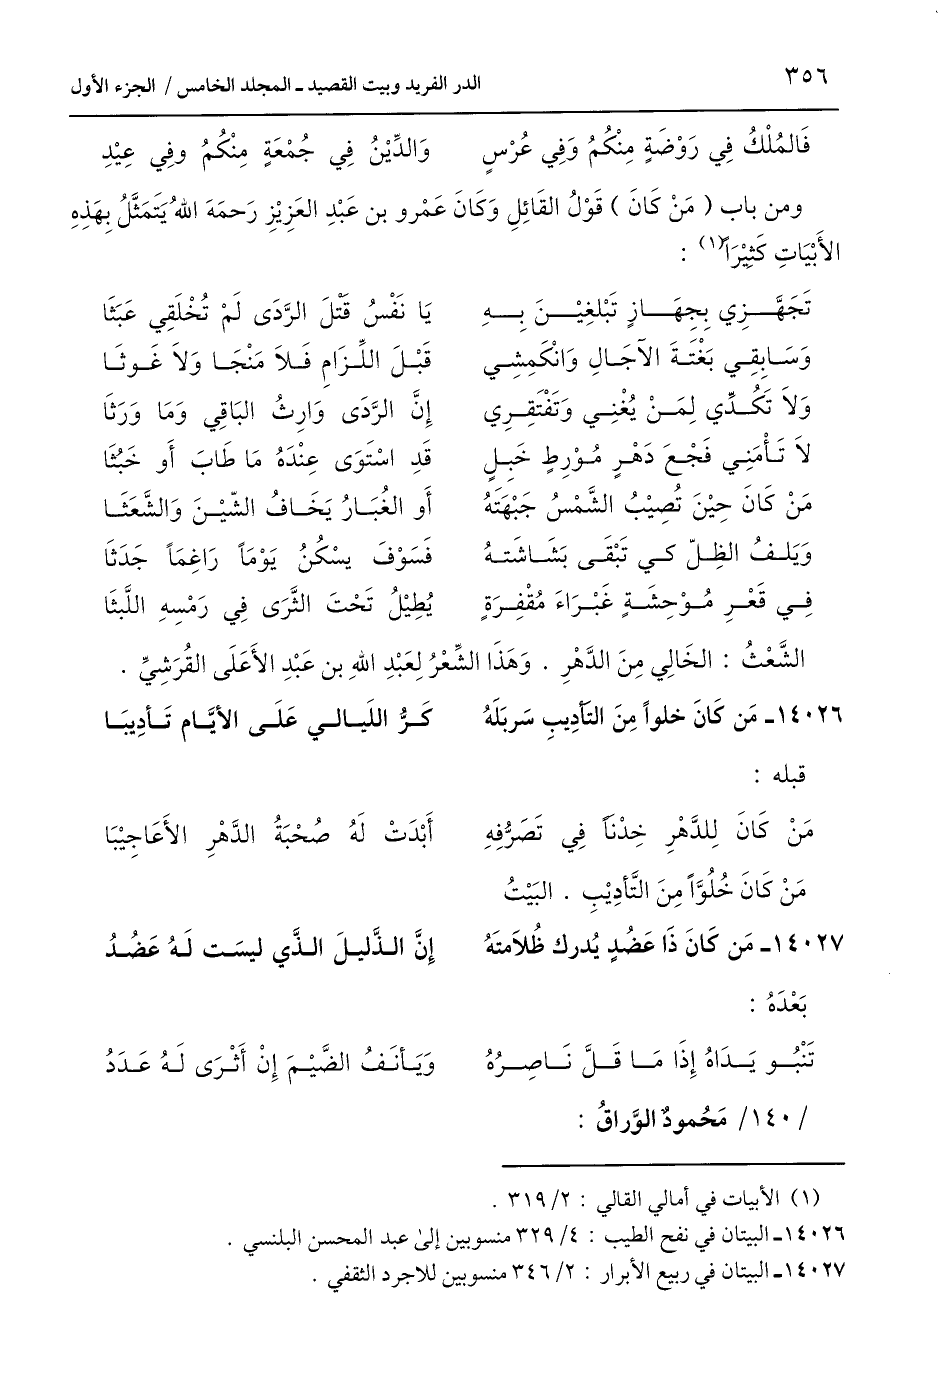 ٣٥٦ الدر الفريد وبيت القصيد ـ المجلد الخامس / الجزء الأول
فَالمُلْكُ فِي رَوْضَةٍ مِنْكُمُ وَفِي عُرْسٍ وَالدِّيْنُ فِي جُمْعَةٍ مِنْكُمُ وفِي عِيْدِ
ومن باب ( مَنْ كَانَ ) قَوْلُ القَائِلِ وَكَانَ عَمْرو بن عَبْدِ العَزِيْزِ رَحمَهَ اللهُ يَتَمَثَّلُ بِهَذِهِ
الأَبْيَاتِ كَثِيْرَاً(١) :
تَجَهَّزِي بِجِهَازٍ تَبْلغِيْنَ بِهِ يَا نَفْسُ قَتْلَ الرَّدَى لَمْ تُخْلَقِي عَبَثَا
وَسَابِقِي بَغْتَةَ الآجَالِ وَانْكَمِشِي قَبْلَ اللِّزَامِ فَلاَ مَنْجَا وَلاَ غَوثَا
وَلاَ تَكُدِّي لِمَنْ يُغْنِي وَتَفْتَقِرِي إِنَّ الرَّدَى وَارِثُ البَاقِي وَمَا وَرَثَا
لاَ تَأْمَنِي فَجْعَ دَهْرٍ مُوْرِطٍ خَبِلٍ قَدِ اسْتَوَى عِنْدَهُ مَا طَابَ أَو خَبُثَا
مَنْ كَانَ حِيْنَ تُصِيْبُ الشَّمْسُ جَبْهَتَهُ أَو الغُبَارُ يَخَافُ الشّيْنَ وَالشَّعَثَا
وَيَلفُ الظِلّ كَي تَبْقَى بَشَاشَتهُ فَسَوْفَ يسْكُنُ يَوْمَاً رَاغِمَاً جَدَثَا
فِي قَعْرِ مُوْحِشَةٍ غَبْرَاءَ مُقْفِرَةٍ يُطِيْلُ تَحْتَ الثَّرَى فِي رَمْسِهِ اللَّبثَا
الشَّعْثُ : الخَالِي مِنَ الدَّهْرِ . وَهَذَا الشِّعْرُ لِعَبْدِ اللهِ بن عَبْدِ الأَعَلَى القُرَشِيِّ .
١٤٠٢٦ـ مَن كَانَ خلواً مِنَ التَأدِيبِ سَربَلَهُ كَرُّ اللَيالي عَلَى الأيَّامِ تَأدِيبَا
قبله :
مَنْ كَانَ لِلدَّهْرِ خِدْنَاً فِي تَصَرُّفِهِ أَبْدَتْ لَهُ صُحْبَةُ الدَّهْرِ الأَعَاجِيْبَا
مَنْ كَانَ خُلُوَّاً مِنَ التَّأدِيْبِ . البَيْتُ
١٤٠٢٧ـ مَن كَانَ ذَا عَضُدٍ يُدرك ظُلاَمتَهُ إنَّ الذَّليلَ الذَّي ليسَت لَهُ عَضُدُ
بَعْدَهُ :
تَنْبُو يَدَاهُ إِذَا مَا قَلَّ نَاصِرُهُ وَيَأنَفُ الضَّيْمَ إِنْ أَثْرَى لَهُ عَدَدُ
/ ١٤٠/ مَحْمودٌ الوَّراقُ :
(١) الأبيات في أمالي القالي : ٢/ ٣١٩ .
١٤٠٢٦ـ البيتان في نفح الطيب : ٤/ ٣٢٩ منسوبين إلىٰ عبد المحسن البلنسي .
١٤٠٢٧ـ البيتان في ربيع الأبرار : ٢/ ٣٤٦ منسوبين للاجرد الثقفي .